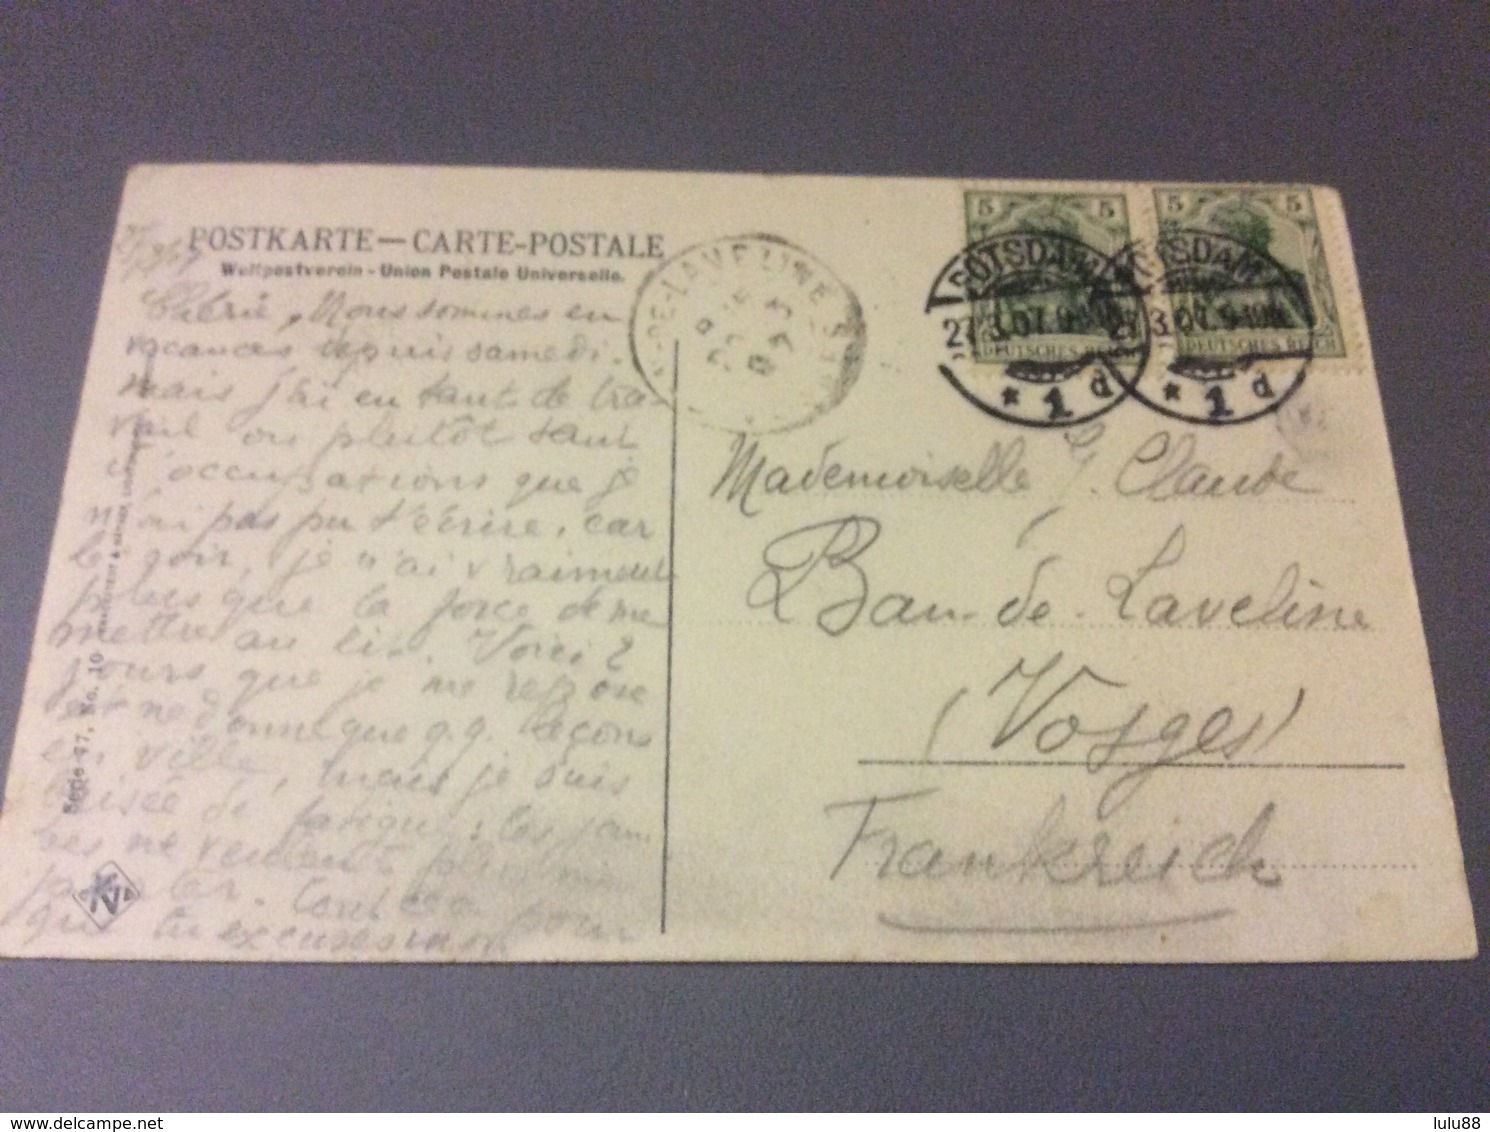 POSTKARTE — CARTE-POSTALE
Weltpostverein - Union Postale Universelle.
Chérie, Nous sommes en
vacances depuis samedi.
mais j'ai eu tant de tra-
vail ou plutôt tant
d'occupations que je
n'ai pas pu t'écrire, car
le soir, je n'ai vraiment
plus que la force de me
mettre au lit. Voici 2
jours que je me repose
et ne donne que q.q. leçons
en ville, mais je suis
brisée de fatigue; les jam
bes ne veulent plus me
porter.
que tu excuses
Serie 97, No. 10
BAN-DE-LAVELINE
5 5
5 5
POTSDAM
27.3.07.9-10
* 1 d
DEUTSCHES REICH
POTSDAM
27.3.07.9-10
* 1 d
DEUTSCHES REICH
Mademoiselle J. Claude
Ban-de-Laveline
(Vosges)
Frankreich
lulu88